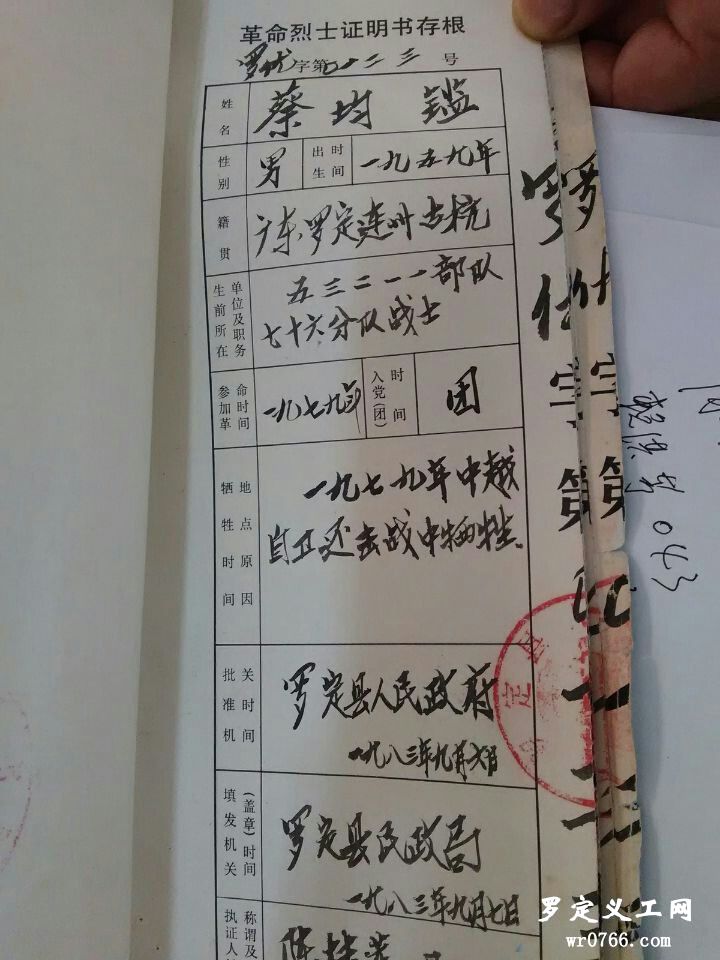 革命烈士证明书存根
罗优字第〇一二三号
姓名
蔡均鑑
性别
男
出生时间
一九五九年
籍贯
广东罗定连州古杭
生前所在单位及职务
五三二一一部队
七十六分队战士
参加革命时间
一九七九年
入党(团)时间
团
牺牲时间地点原因
一九七九年中越
自卫还击战中牺牲.
批准机关时间
罗定县人民政府
一九八三年九月六日
填发机关(盖章)时间
罗定县民政局
一九八三年九月七日
执证人
称谓及
陈
罗优字第〇一二三
字第
043
罗定义工网
wr0766.com